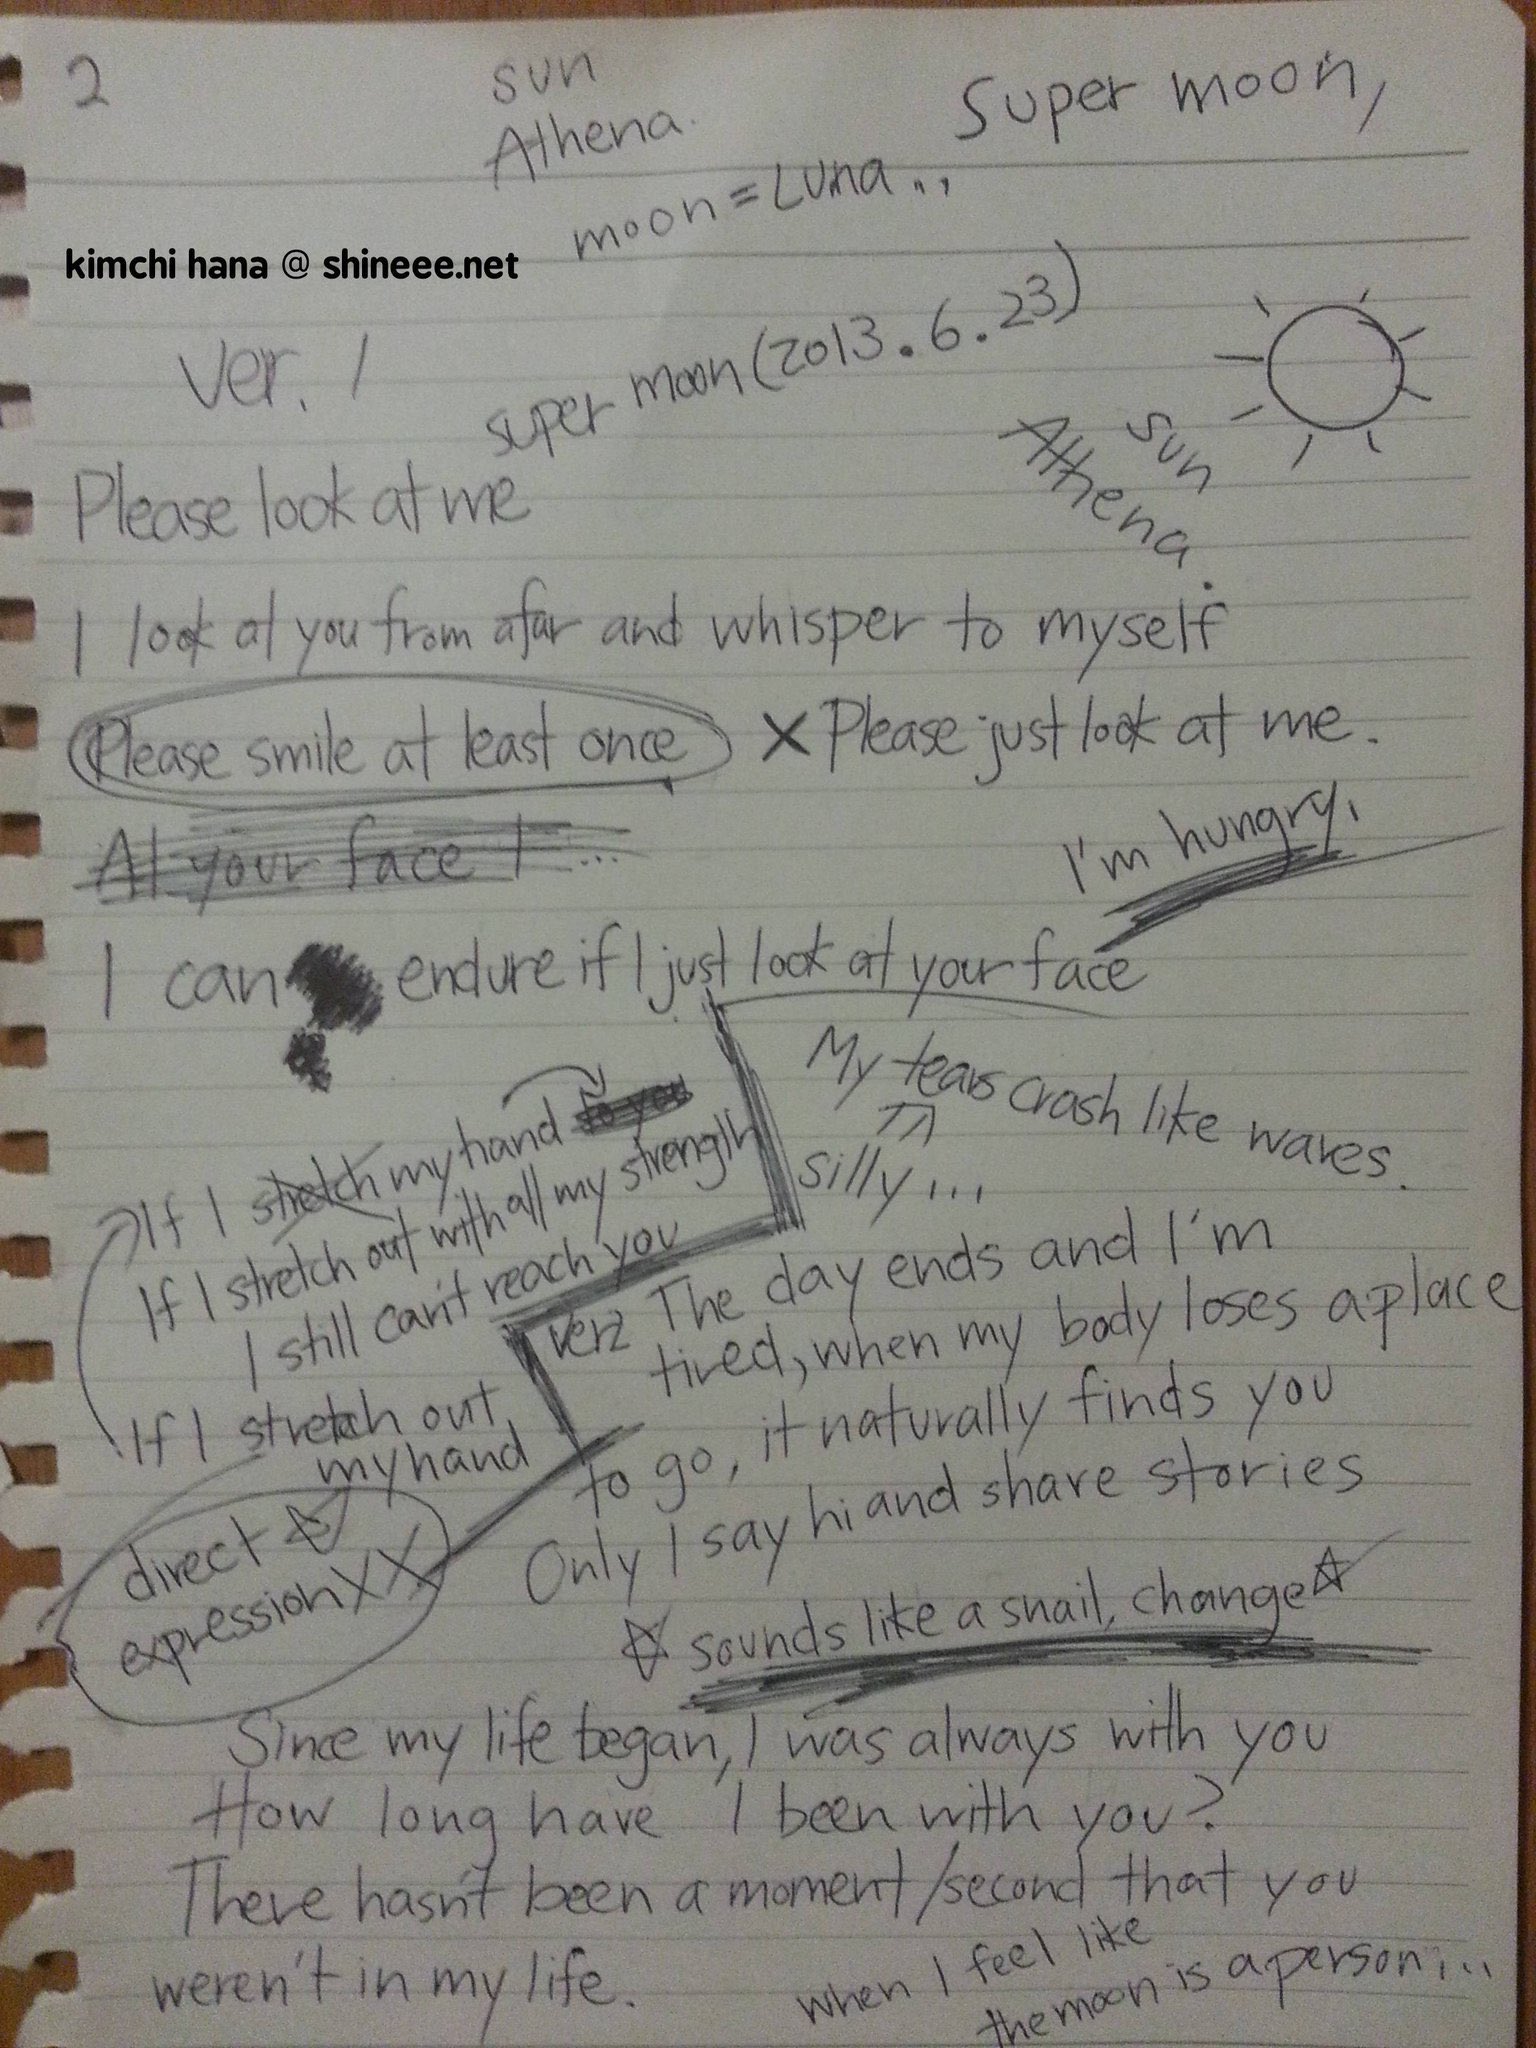 2
sun
Athena.
Super moon,
moon = Luna..
kimchi hana @ shineee.net
ver. 1
super moon (2013.6.23)
sun
Athena.
Please look at me
I look at you from afar and whisper to myself
Please smile at least once X Please just look at me.
At your face I ...
I'm hungry.
I can endure if I just look at your face
My tears crash like waves.
silly...
If I stretch my hand to you
If I stretch out with all my strength
I still can't reach you
If I stretch out
my hand
direct
expression XX
ver2 The day ends and I'm
tired, when my body loses a place
to go, it naturally finds you
Only I say hi and share stories
☆ sounds like a snail, change ☆
Since my life began, I was always with you
How long have I been with you?
There hasn't been a moment/second that you
weren't in my life.
when I feel like
the moon is a person...